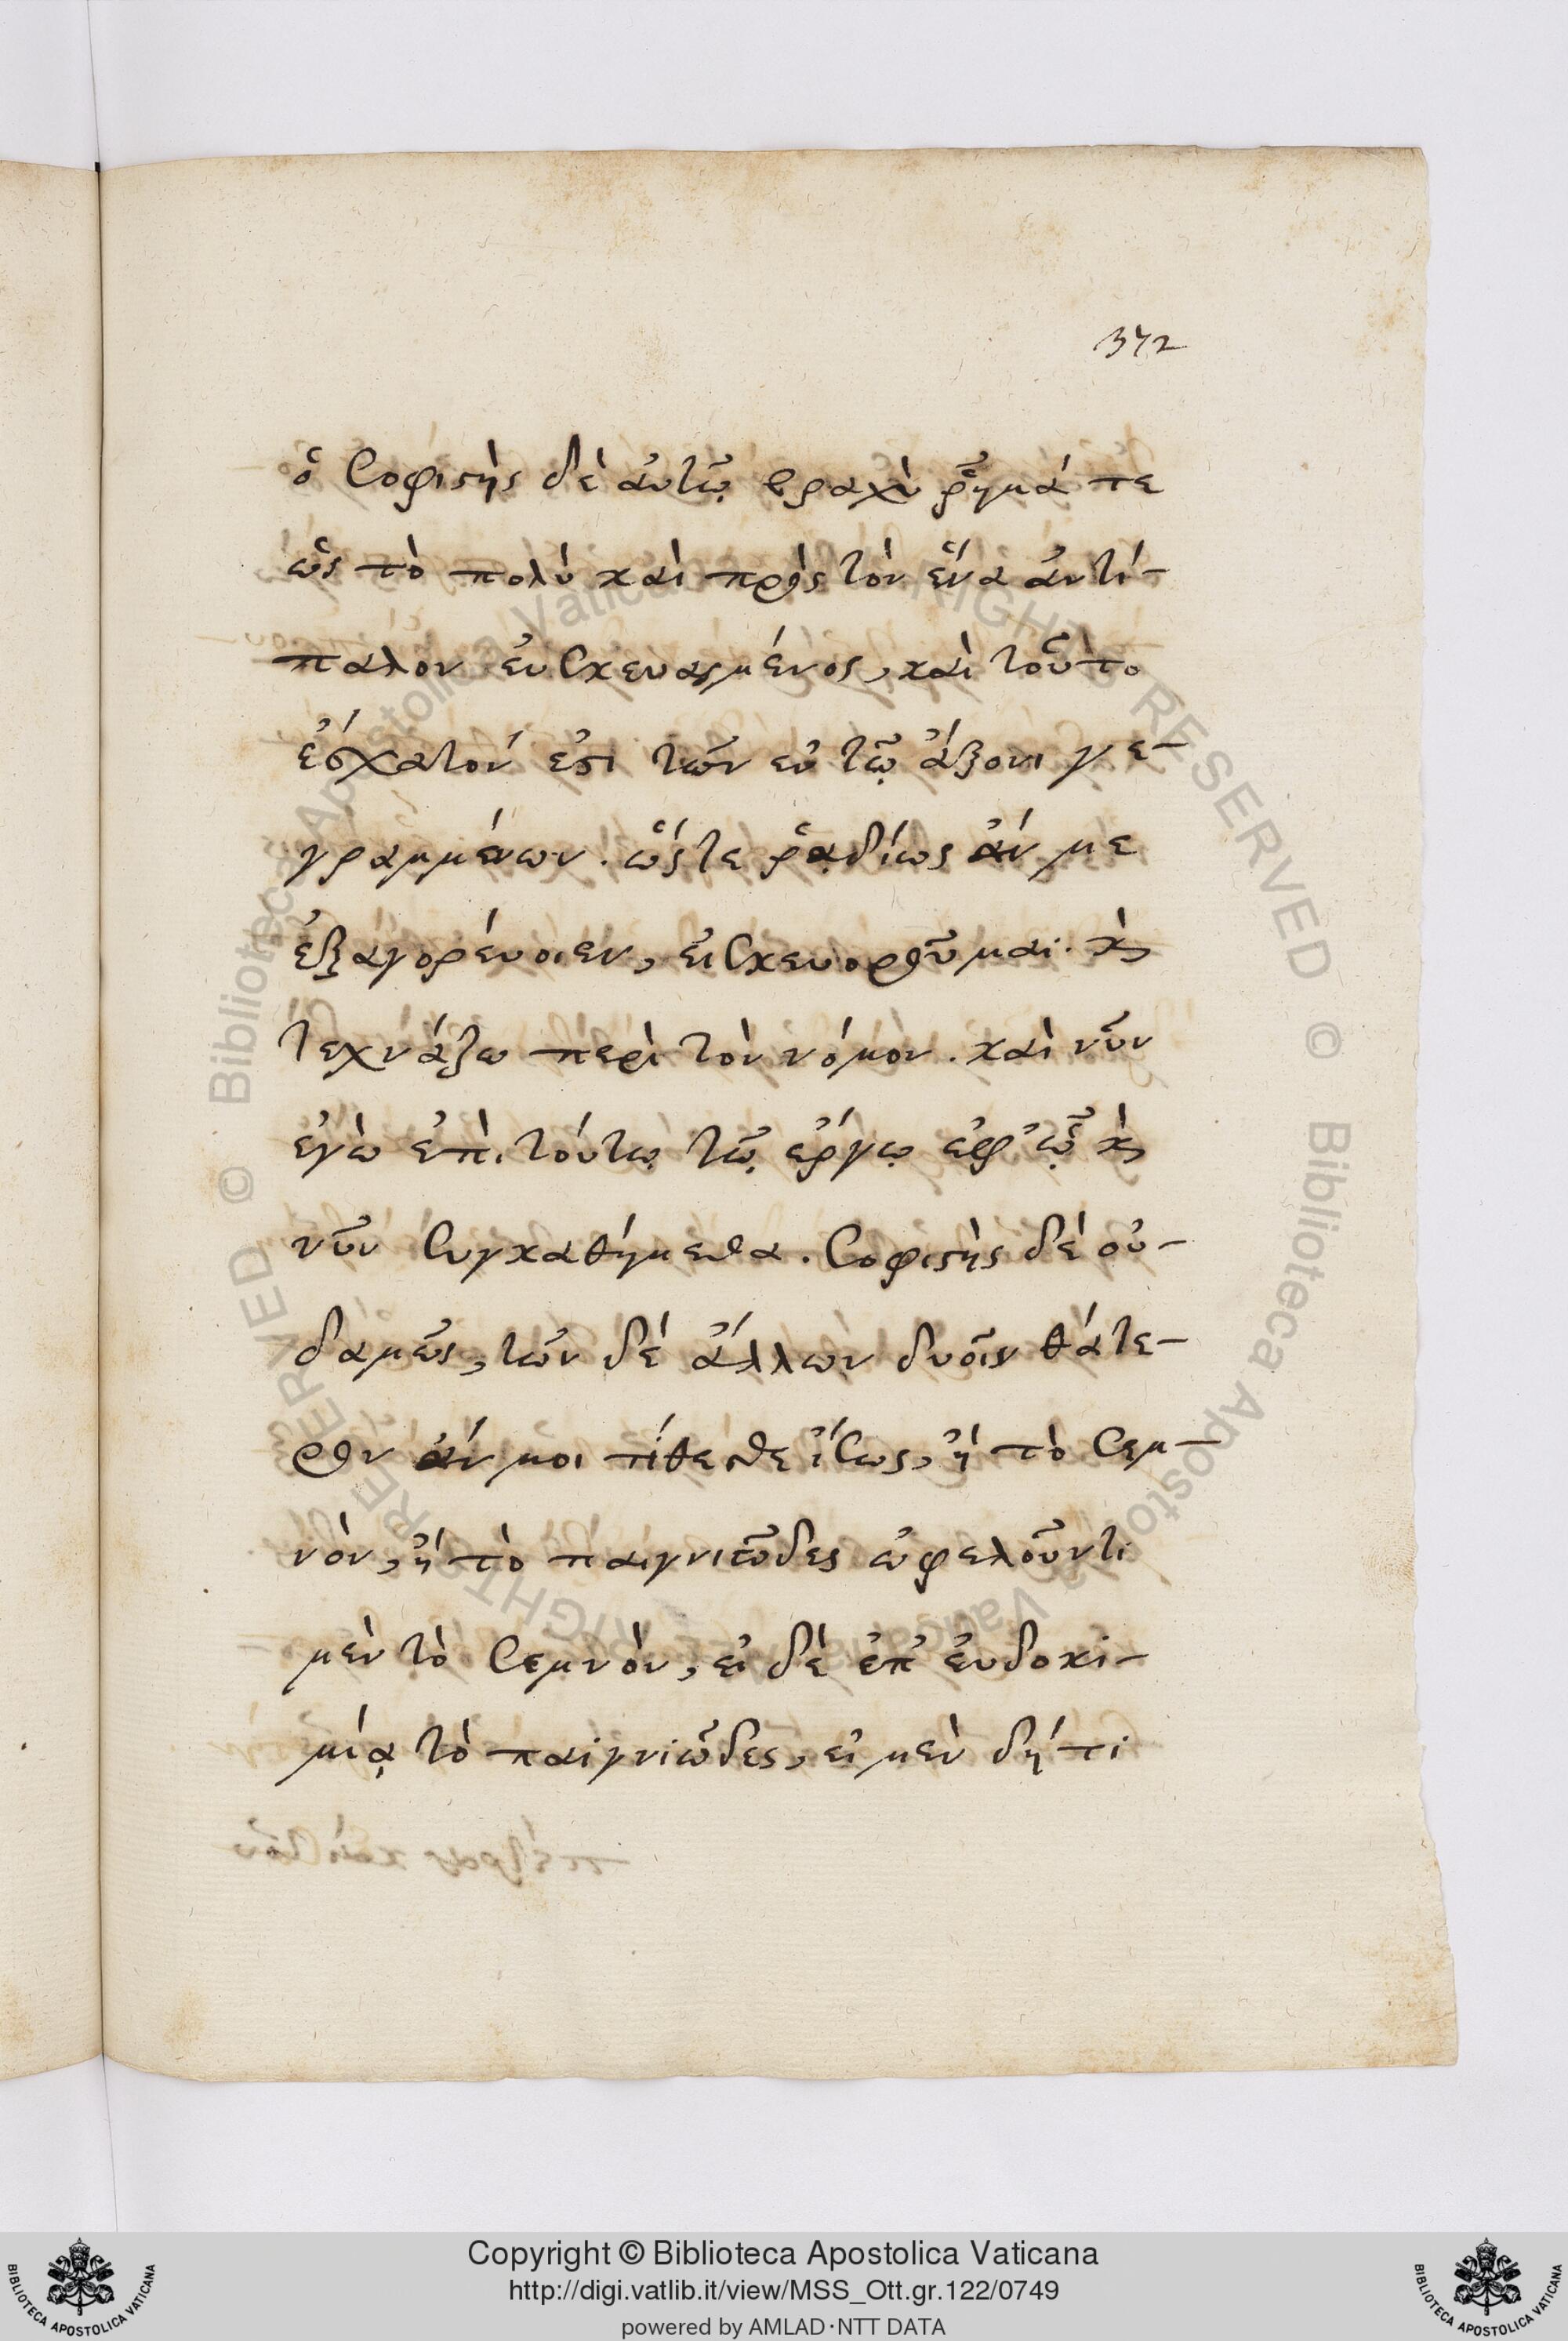 372
ὁ σοφιστὴς δὲ αὐτῷ βραχὺ ῥῆμά τε
ὡς τὸ πολὺ καὶ πρὸς τὸν ἕνα ἀντί-
παλον εὐσκευασμένος, καὶ τοῦτο
ἔσχατόν ἐστι τῶν ἐν τῷ ἄξονι γε-
γραμμένων. ὥστε ῥᾳδίως ἄν με
ἐξαγορεύοιεν, εἰ σκευοροῦμαι. καὶ
τεχνάζω περὶ τὸν νόμον. καὶ νῦν
ἐγὼ ἐπὶ τούτῳ τῷ ἔργῳ ἐφ' ᾧ καὶ
νῦν συγκαθήμεθα. σοφιστὴς δὲ οὐ-
δαμῶς, τῶν δὲ ἄλλων δυοῖν θάτε-
ρον ἄν μοι πίθεσθε ἴσως, ἢ τὸ σεμ-
νὸν, ἢ τὸ παιγνιῶδες ὠφελοῦντι
μὲν τὸ σεμνὸν, εἰ δὲ ἐπ' εὐδοκι-
μίᾳ τὸ παιγνιῶδες, εἰ μὲν δή τι
Copyright © Biblioteca Apostolica Vaticana
http://digi.vatlib.it/view/MSS_Ott.gr.122/0749
powered by AMLAD·NTT DATA